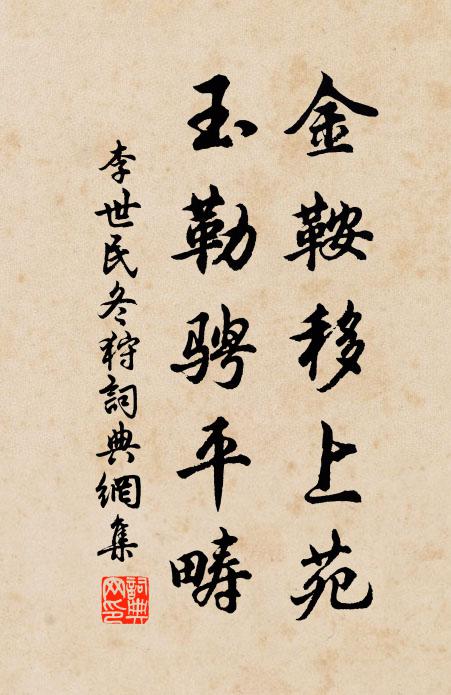 金鞍移上苑
玉勒騁平疇
李世民冬狩詞典網集
詞典网印